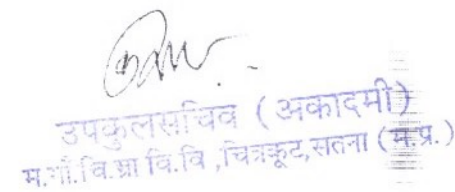 उपकुलसचिव (अकादमी)
म.गाँ.चि.ग्रा वि.वि ,चित्रकूट,सतना (म.प्र.)